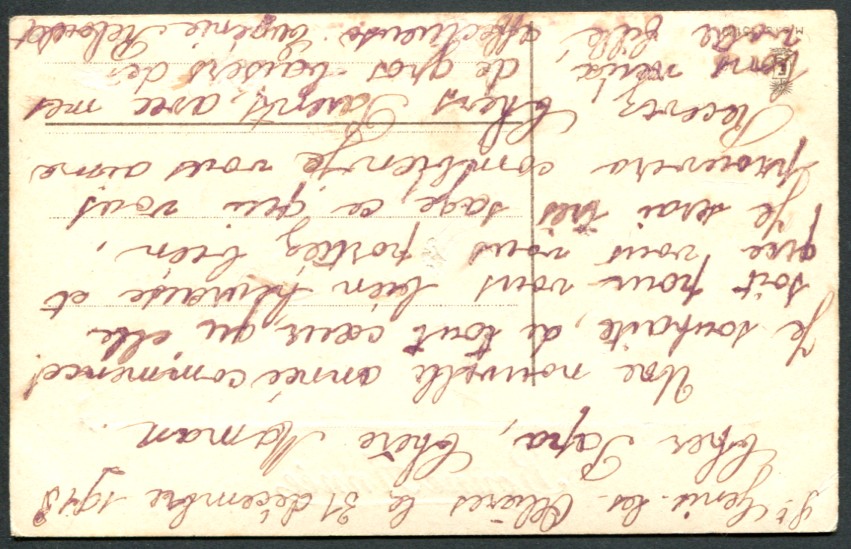 St Genis-les-Ollières le 31 décembre 1948
Cher Papa, Chère Maman.
Une nouvelle année commence!
Je souhaite, de tout cœur, qu elle
soit pour vous bien heureuse et
que vous vous portiez bien,
Je serai très sage ce qui vous
prouvera combien je vous aime
Recevez Chers Parents, avec mes
bons de gros baisers de
votre fille affectueuse. Eugénie